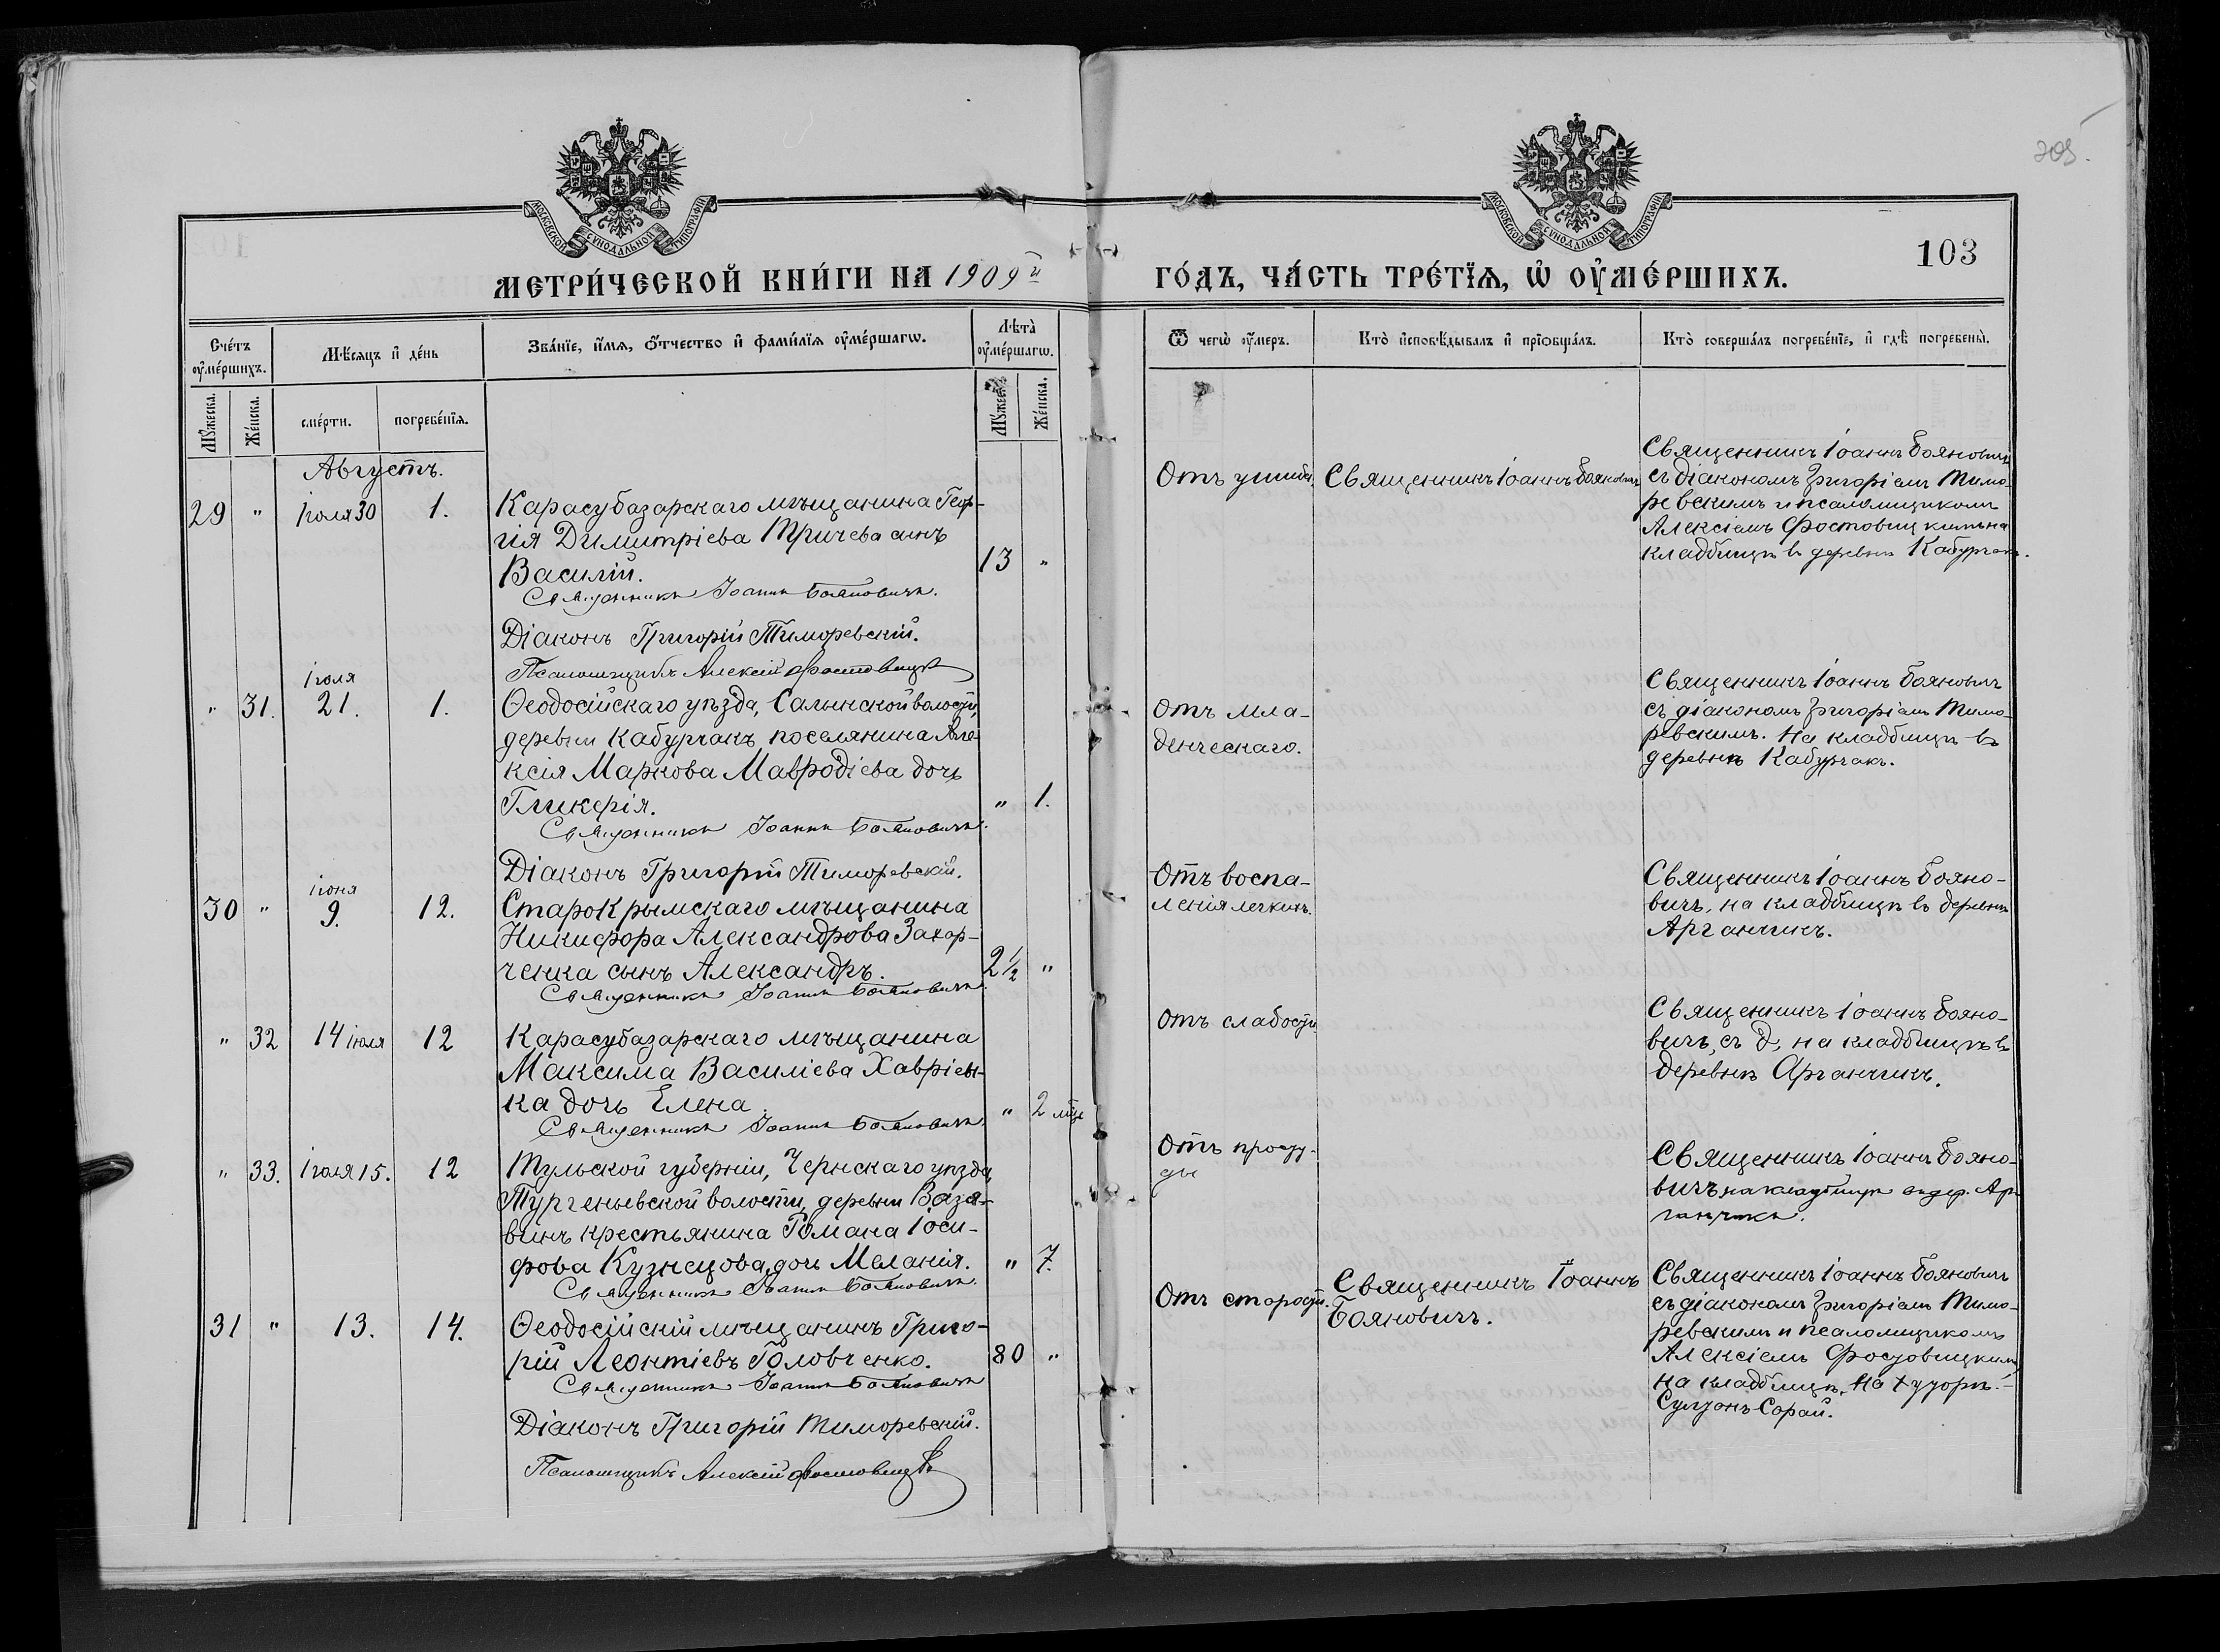 МОСКОВСКОЙ СѴНОДАЛЬНОЙ ТИПОГРАФІИ
МОСКОВСКОЙ СѴНОДАЛЬНОЙ ТИПОГРАФІИ
103
МЕТРИ́ЧЕСКОЙ КНИ́ГИ НА 1909й ГО́ДЪ, ЧА́СТЬ ТРЕ́ТЇѦ, Ѡ҆ ОУ҆МЕ́РШИХЪ.
Сче́тъ оу҆ме́ршихъ.
Мѣ́сяцъ и҆ де́нь
Зва́нїе, и҆́мѧ, ѻ҆́тчество и҆ фами́лїѧ оу҆ме́ршагѡ.
Лѣ́та оу҆ме́ршагѡ.
Ѿ чегѡ̀ оу҆́меръ.
Кто̀ и҆сповѣ́дывалъ и҆ прїѡбща́лъ.
Кто̀ соверша́лъ погребе́нїе, и҆ гдѣ̀ погребены̀.
Мꙋ́жеска.
Же́нска.
сме́рти.
погребе́нїѧ.
Мꙋ́жеск.
Же́нска.
Августъ.
29 " Іюля 30 1.
Карасубазарскаго мѣщанина Геор-
гія Димитріева Тричева сынъ
Василій. 13 "
Священникъ Іоаннъ Бояновичъ.
Діаконъ Григорій Тиморевскій.
Псаломщикъ Алексій Фостовицкій
Отъ ушиба.
Священникъ Іоаннъ Бояновичъ
Священникъ Іоаннъ Бояновичъ
съ діакономъ Григоріемъ Тимо-
ревскимъ и псаломщикомъ
Алексіемъ Фостовицкимъ на
кладбищѣ въ деревнѣ Кабурчакъ.
" 31. Іюля 21. 1.
Ѳеодосійскаго уѣзда, Салынской волости,
деревни Кабурчакъ поселянина Але-
ксія Маркова Мавродіева дочь
Гликерія. " 1.
Священникъ Іоаннъ Бояновичъ.
Діаконъ Григорій Тиморевскій.
Отъ мла-
денческаго.
Священникъ Іоаннъ Бояновичъ
съ діакономъ Григоріемъ Тимо-
ревскимъ. На кладбищѣ въ
деревнѣ Кабурчакъ.
30 " Іюня 9. 12.
СтароКрымскаго мѣщанина
Никифора Александрова Захар-
ченка сынъ Александръ. 2½ "
Священникъ Іоаннъ Бояновичъ.
Отъ воспа-
ленія легкихъ.
Священникъ Іоаннъ Бояно-
вичъ, на кладбищѣ въ деревнѣ
Арганчикъ.
" 32 14 іюля 12
Карасубазарскаго мѣщанина
Максима Василіева Хавріен-
ка дочь Елена. " 2 мѣс
Священникъ Іоаннъ Бояновичъ.
Отъ слабости
Священникъ Іоаннъ Бояно-
вичъ, съ д, на кладбищѣ въ
деревнѣ Арганчикъ.
" 33. Іюля 15. 12
Тульской губерніи, Чернскаго уѣзда,
Тургеньевской волости, деревни
крестьянина Романа Іоси-
фова Кузнецова, дочь Меланія. " 7.
Священникъ Іоаннъ Бояновичъ.
Отъ просту-
ды
Священникъ Іоаннъ Бояно-
вичъ на кладбищѣ въ дер. Ар-
ганчикъ.
31 " 13. 14.
Ѳеодосійскій мѣщанинъ Григо-
рій Леонтіевъ Головченко. 80 "
Священникъ Іоаннъ Бояновичъ
Діаконъ Григорій Тиморевскій.
Псаломщикъ Алексій Фостовицкій
Отъ старости.
Священникъ Іоаннъ
Бояновичъ.
Священникъ Іоаннъ Бояновичъ
съ діакономъ Григоріемъ Тимо-
ревскимъ и псаломщикомъ
Алексіемъ Фостовицкимъ
на кладбищѣ, на хуторѣ.-
Султанъ Сарай.